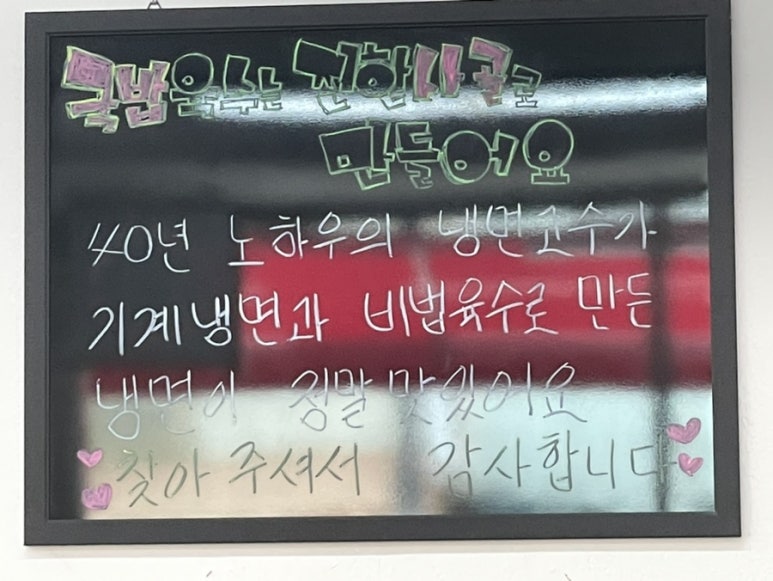 국밥육수는 진한사골로
만들어요
40년 노하우의 냉면고수가
기계냉면과 비법육수로 만든
냉면이 정말 맛있어요
찾아 주셔서 감사합니다